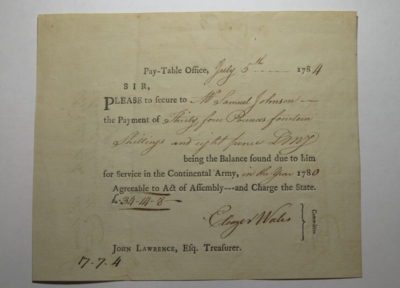 Pay-Table Office, July 5th 1784
SIR,
PLEASE to secure to Mr Samuel Johnson
the Payment of Thirty four Pounds fourteen
Shillings and eight pence L My
being the Balance found due to him
for Service in the Continental Army, in the Year 1780
Agreeable to Act of Assembly—and Charge the State.
£34-14-8
Eleazr Wales
Committee.
JOHN LAWRENCE, Esq. Treasurer.